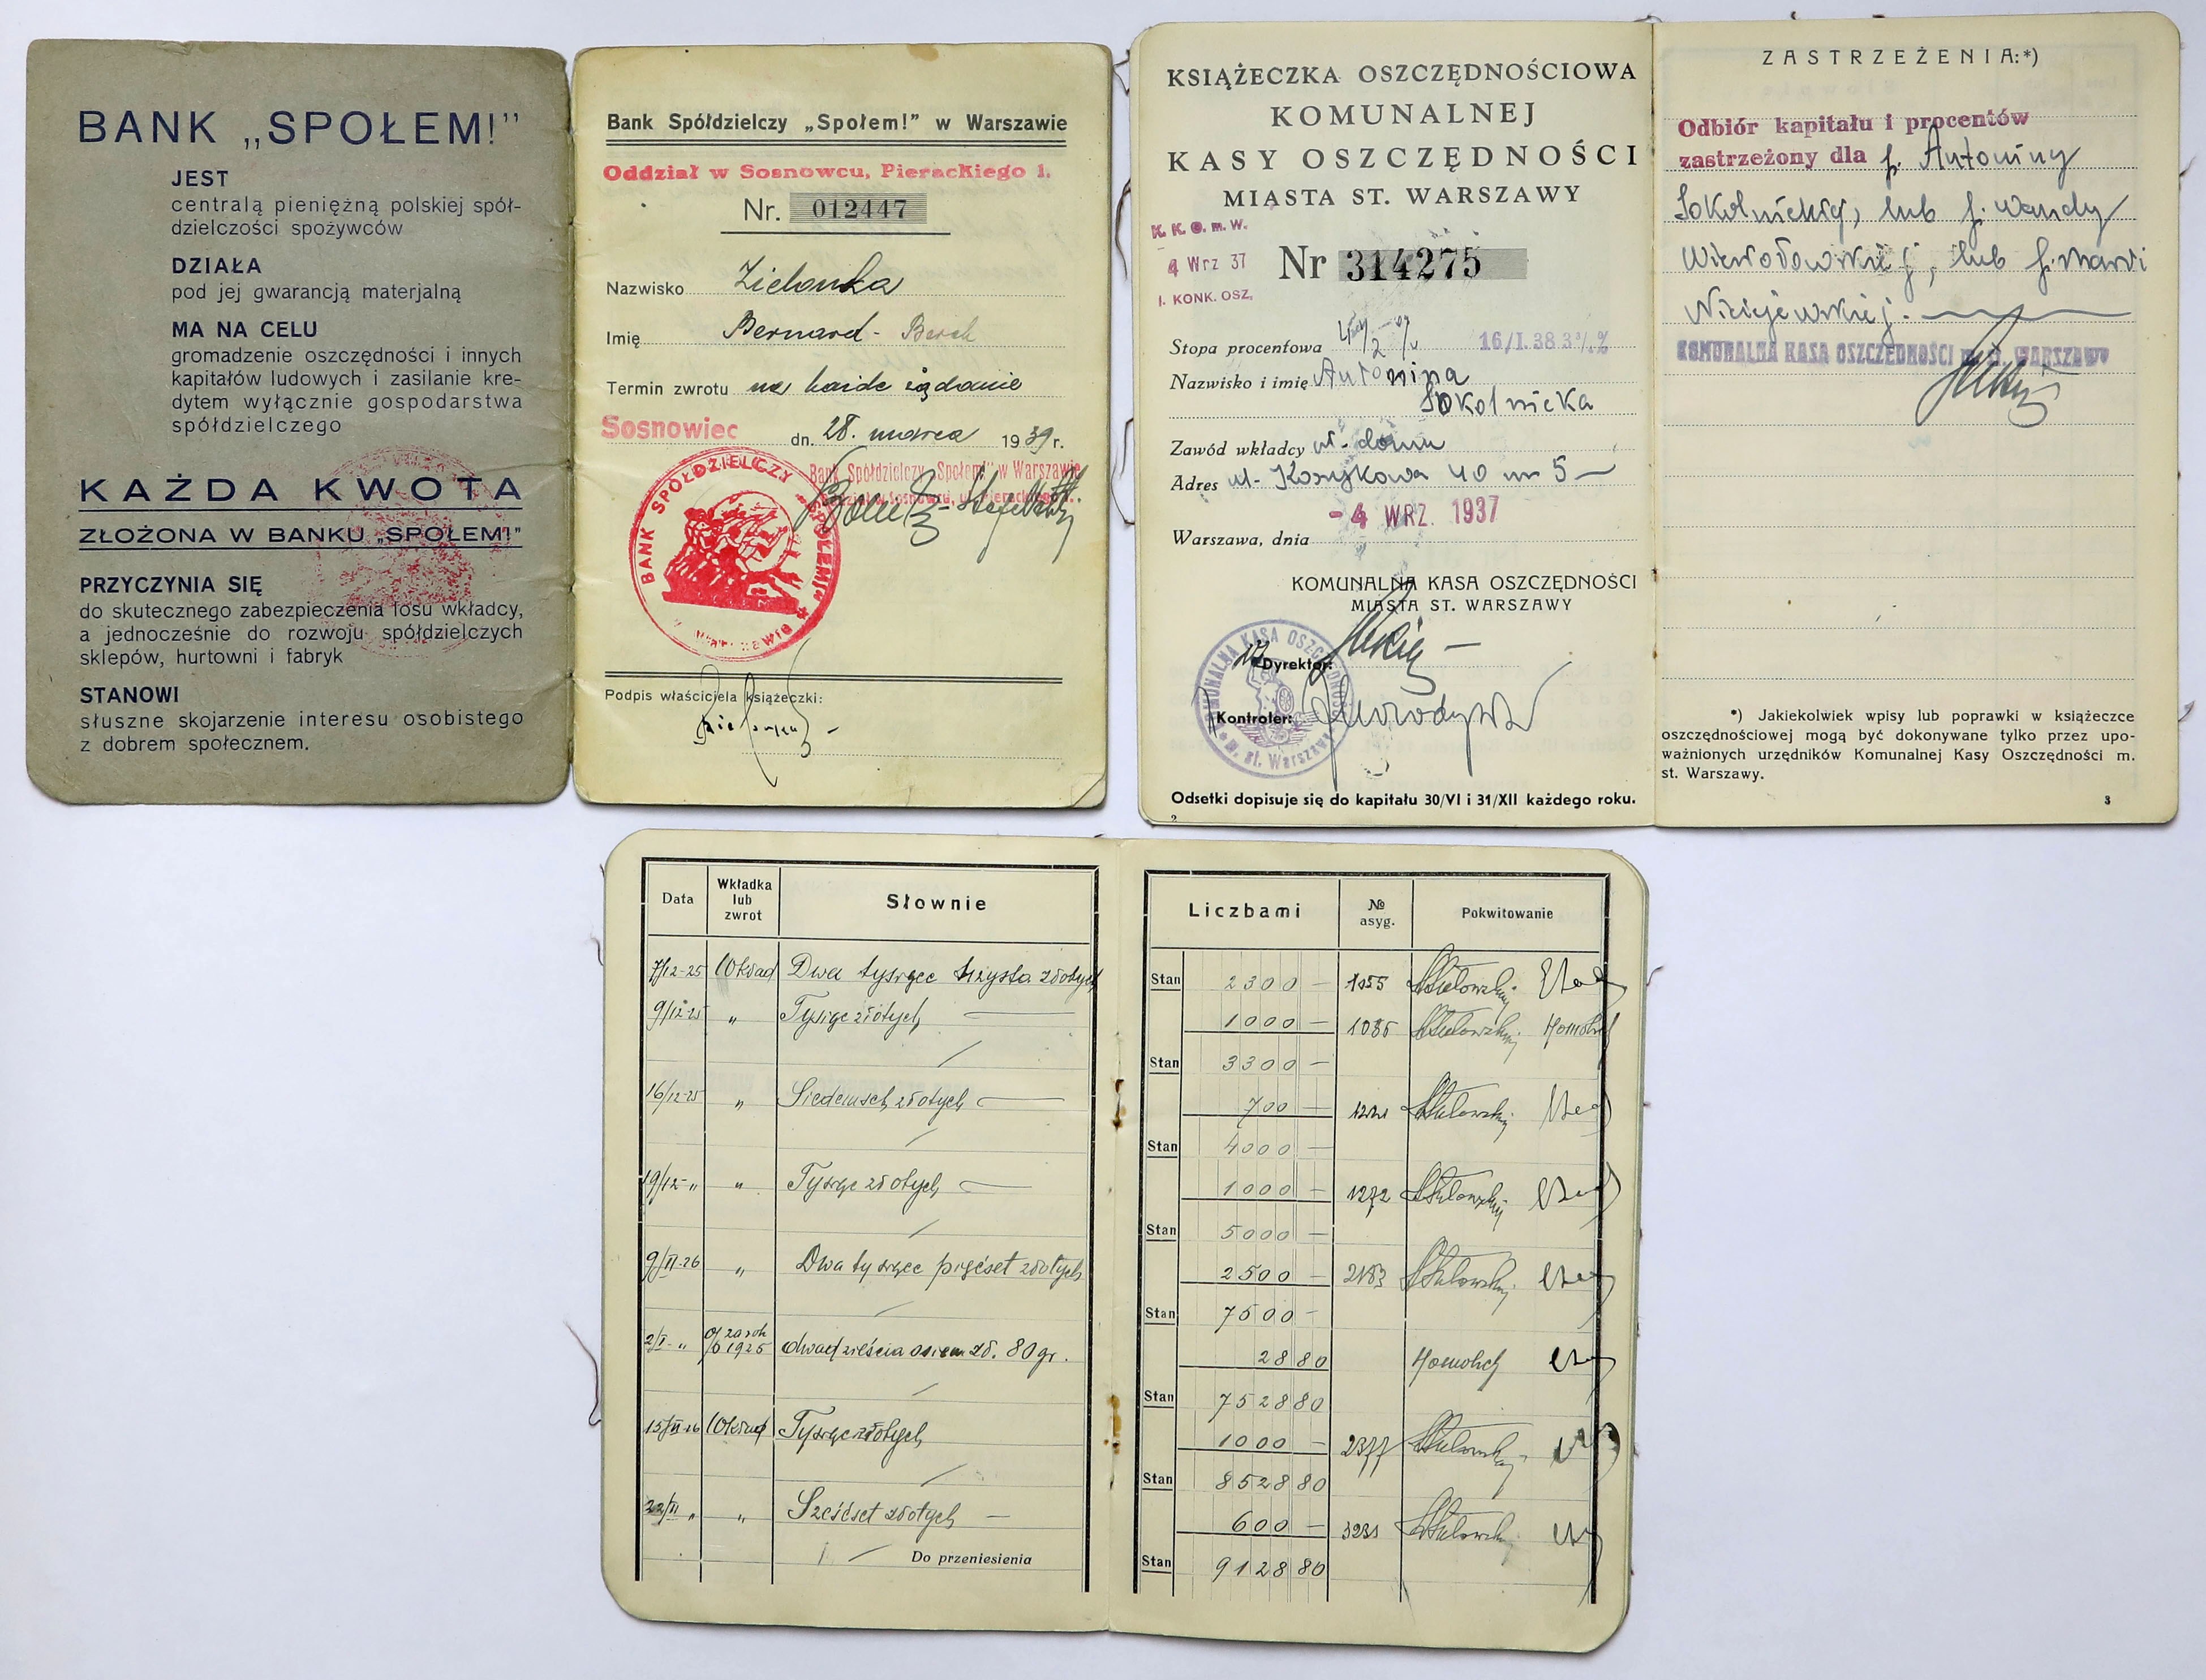 BANK „SPOŁEM!”
JEST
centralą pieniężną polskiej spół-
dzielczości spożywców
DZIAŁA
pod jej gwarancją materjalną
MA NA CELU
gromadzenie oszczędności i innych
kapitałów ludowych i zasilanie kre-
dytem wyłącznie gospodarstwa
spółdzielczego
KAŻDA KWOTA
ZŁOŻONA W BANKU „SPOŁEM!”
PRZYCZYNIA SIĘ
do skutecznego zabezpieczenia losu wkładcy,
a jednocześnie do rozwoju spółdzielczych
sklepów, hurtowni i fabryk
STANOWI
słuszne skojarzenie interesu osobistego
z dobrem społecznem.
Bank Spółdzielczy „Społem!” w Warszawie
Oddział w Sosnowcu, Pierackiego 1.
Nr. 012447
Nazwisko Zielonka
Imię Bernard - Berek
Termin zwrotu na każde żądanie
Sosnowiec dn. 28. marca 1939 r.
Bank Spółdzielczy „Społem!” w Warszawie
Oddział w Sosnowcu, ul. Pierackiego 1.
BANK SPÓŁDZIELCZY „SPOŁEM!”
Podpis właściciela książeczki:
KSIĄŻECZKA OSZCZĘDNOŚCIOWA
KOMUNALNEJ
KASY OSZCZĘDNOŚCI
MIASTA ST. WARSZAWY
K. K. O. m. W.
4 Wrz 37
I. KONK. OSZ.
Nr 314275
Stopa procentowa 4 1/2 % 16/I.38 3 %
Nazwisko i imię Antonina
Sokolnicka
Zawód wkładcy wł. domu
Adres ul. Koszykowa 40 m 5 —
- 4 WRZ. 1937
Warszawa, dnia
KOMUNALNA KASA OSZCZĘDNOŚCI
MIASTA ST. WARSZAWY
Dyrektor:
Kontroler:
KOMUNALNA KASA OSZCZĘDNOŚCI
M. st. Warszawy
Odsetki dopisuje się do kapitału 30/VI i 31/XII każdego roku.
2
ZASTRZEŻENIA:*)
Odbiór kapitału i procentów
zastrzeżony dla p. Antoniny
Sokolnickiej, lub p. Wandy
lub p. Marii
KOMUNALNA KASA OSZCZĘDNOŚCI m. st. WARSZAWY
*) Jakiekolwiek wpisy lub poprawki w książeczce
oszczędnościowej mogą być dokonywane tylko przez upo-
ważnionych urzędników Komunalnej Kasy Oszczędności m.
st. Warszawy.
3
Data Wkładka lub zwrot Słownie Liczbami № asyg. Pokwitowanie
7/12-25 Wkład Dwa tysięce trzysta złotych Stan 2300 — 1055
9/12-25 „ Tysiąc złotych — 1000 — 1085
Stan 3300 —
16/12-25 „ Siedemset złotych — 700 — 1221
Stan 4000 —
19/12-„ „ Tysiąc złotych — 1000 — 1272
Stan 5000 —
9/II-26 „ Dwa tysięce pięćset złotych 2500 — 2183
Stan 7500 —
2/I-„ % za rok 1925 dwadzieścia osiem zł. 80 gr. 28 80
Stan 7528 80
15/II-26 Wkład Tysiąc złotych 1000 — 2377
Stan 8528 80
22/II „ „ Sześćset złotych — 600 — 3231
Do przeniesienia Stan 9128 80